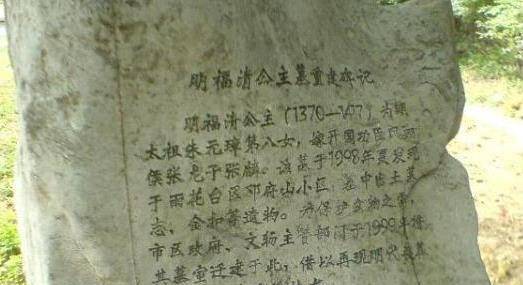 明福清公主墓重建碑记
明福清公主(1370—1417)为明
太祖朱元璋第八女,嫁开国功臣凤翔
侯张龙子张麟。该墓于1998年夏发现
于雨花台区邓府山小区,墓中出土墓
志、金扣等遗物。为保护文物之需,
市区政府、文物主管部门于1999年将
其墓室迁建于此,借以再现明代